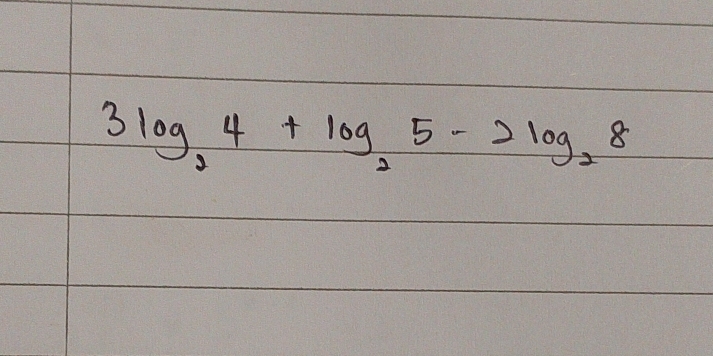 3 log₂ 4 + log₂ 5 - 2 log₂ 8